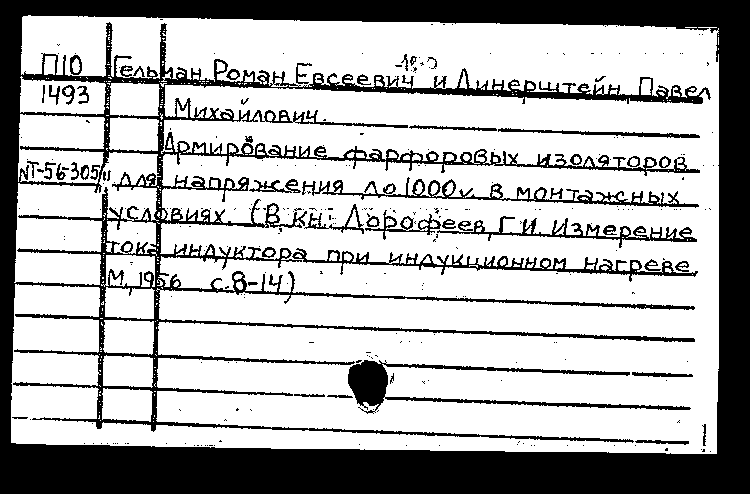 П10 Гельман, Роман Евсеевич и Динерштейн, Павел
1493 Михайлович.
Армирование фарфоровых изоляторов
для напряжения до 1000 v. в монтажных
условиях. (В кн: Дорофеев, Г.И. Измерение
тока индуктора при индукционном нагреве.
М., 1956 с.8-14)